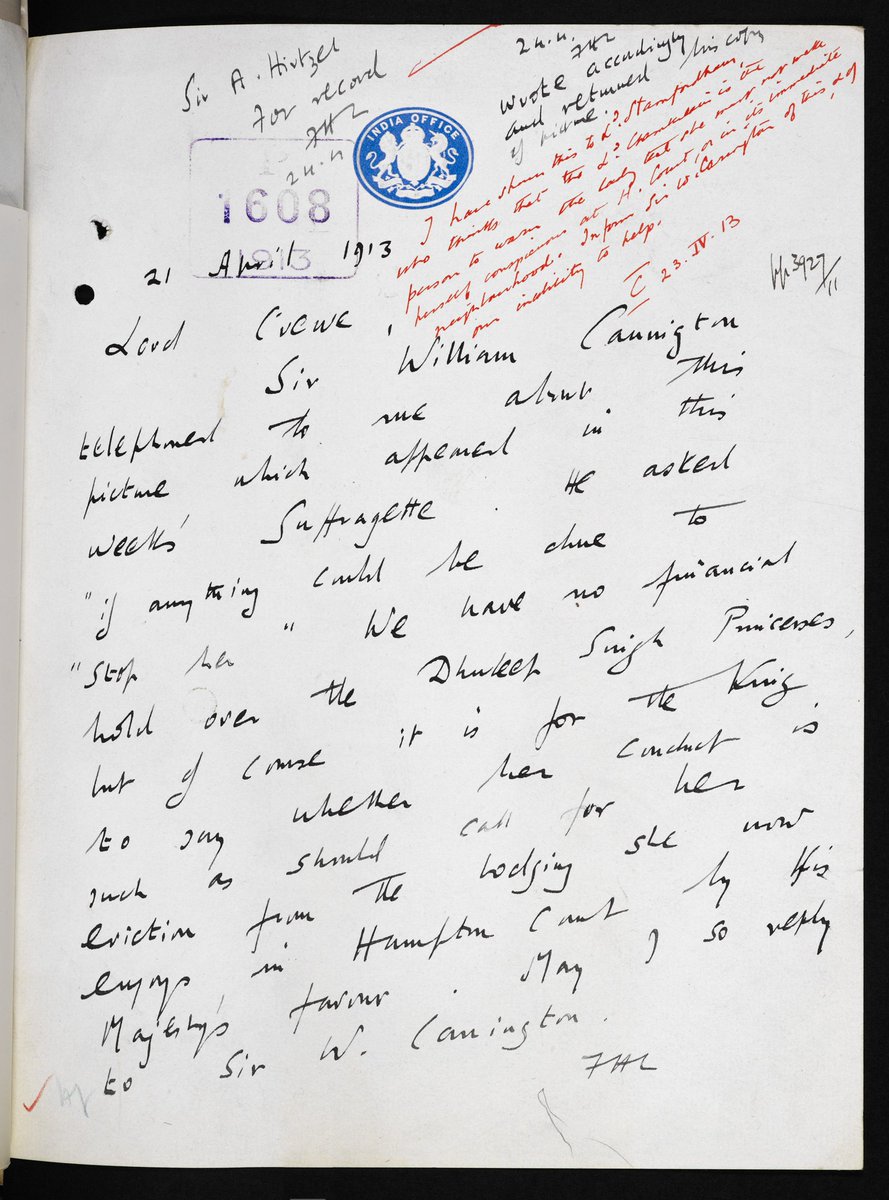 Sir A. Hirtzel
For record
FHL
24.4
24.4.
FHL
wrote accordingly
and returned his copy
of picture
INDIA OFFICE
P
1608
1913
I have shown this to Ld. Stamfordham,
who thinks that the Ld. Chamberlain is the
person to warn the lady that she must not make
herself conspicuous at H. Court, or in its immediate
neighbourhood. Inform Sir W. Carington of this, & of
our inability to help.
C 23.IV.13
3927/11
21 April 1913
Lord Crewe,
Sir William Carrington
telephoned to me about this
picture which appeared in this
week's Suffragette. He asked
"if anything could be done to
"stop her" We have no financial
hold over the Dhuleep Singh Princesses,
but of course it is for the King
to say whether her conduct is
such as should call for her
eviction from the lodging she now
enjoys, in Hampton Court by His
Majesty's favour. May I so reply
to Sir W. Carrington.
FHL